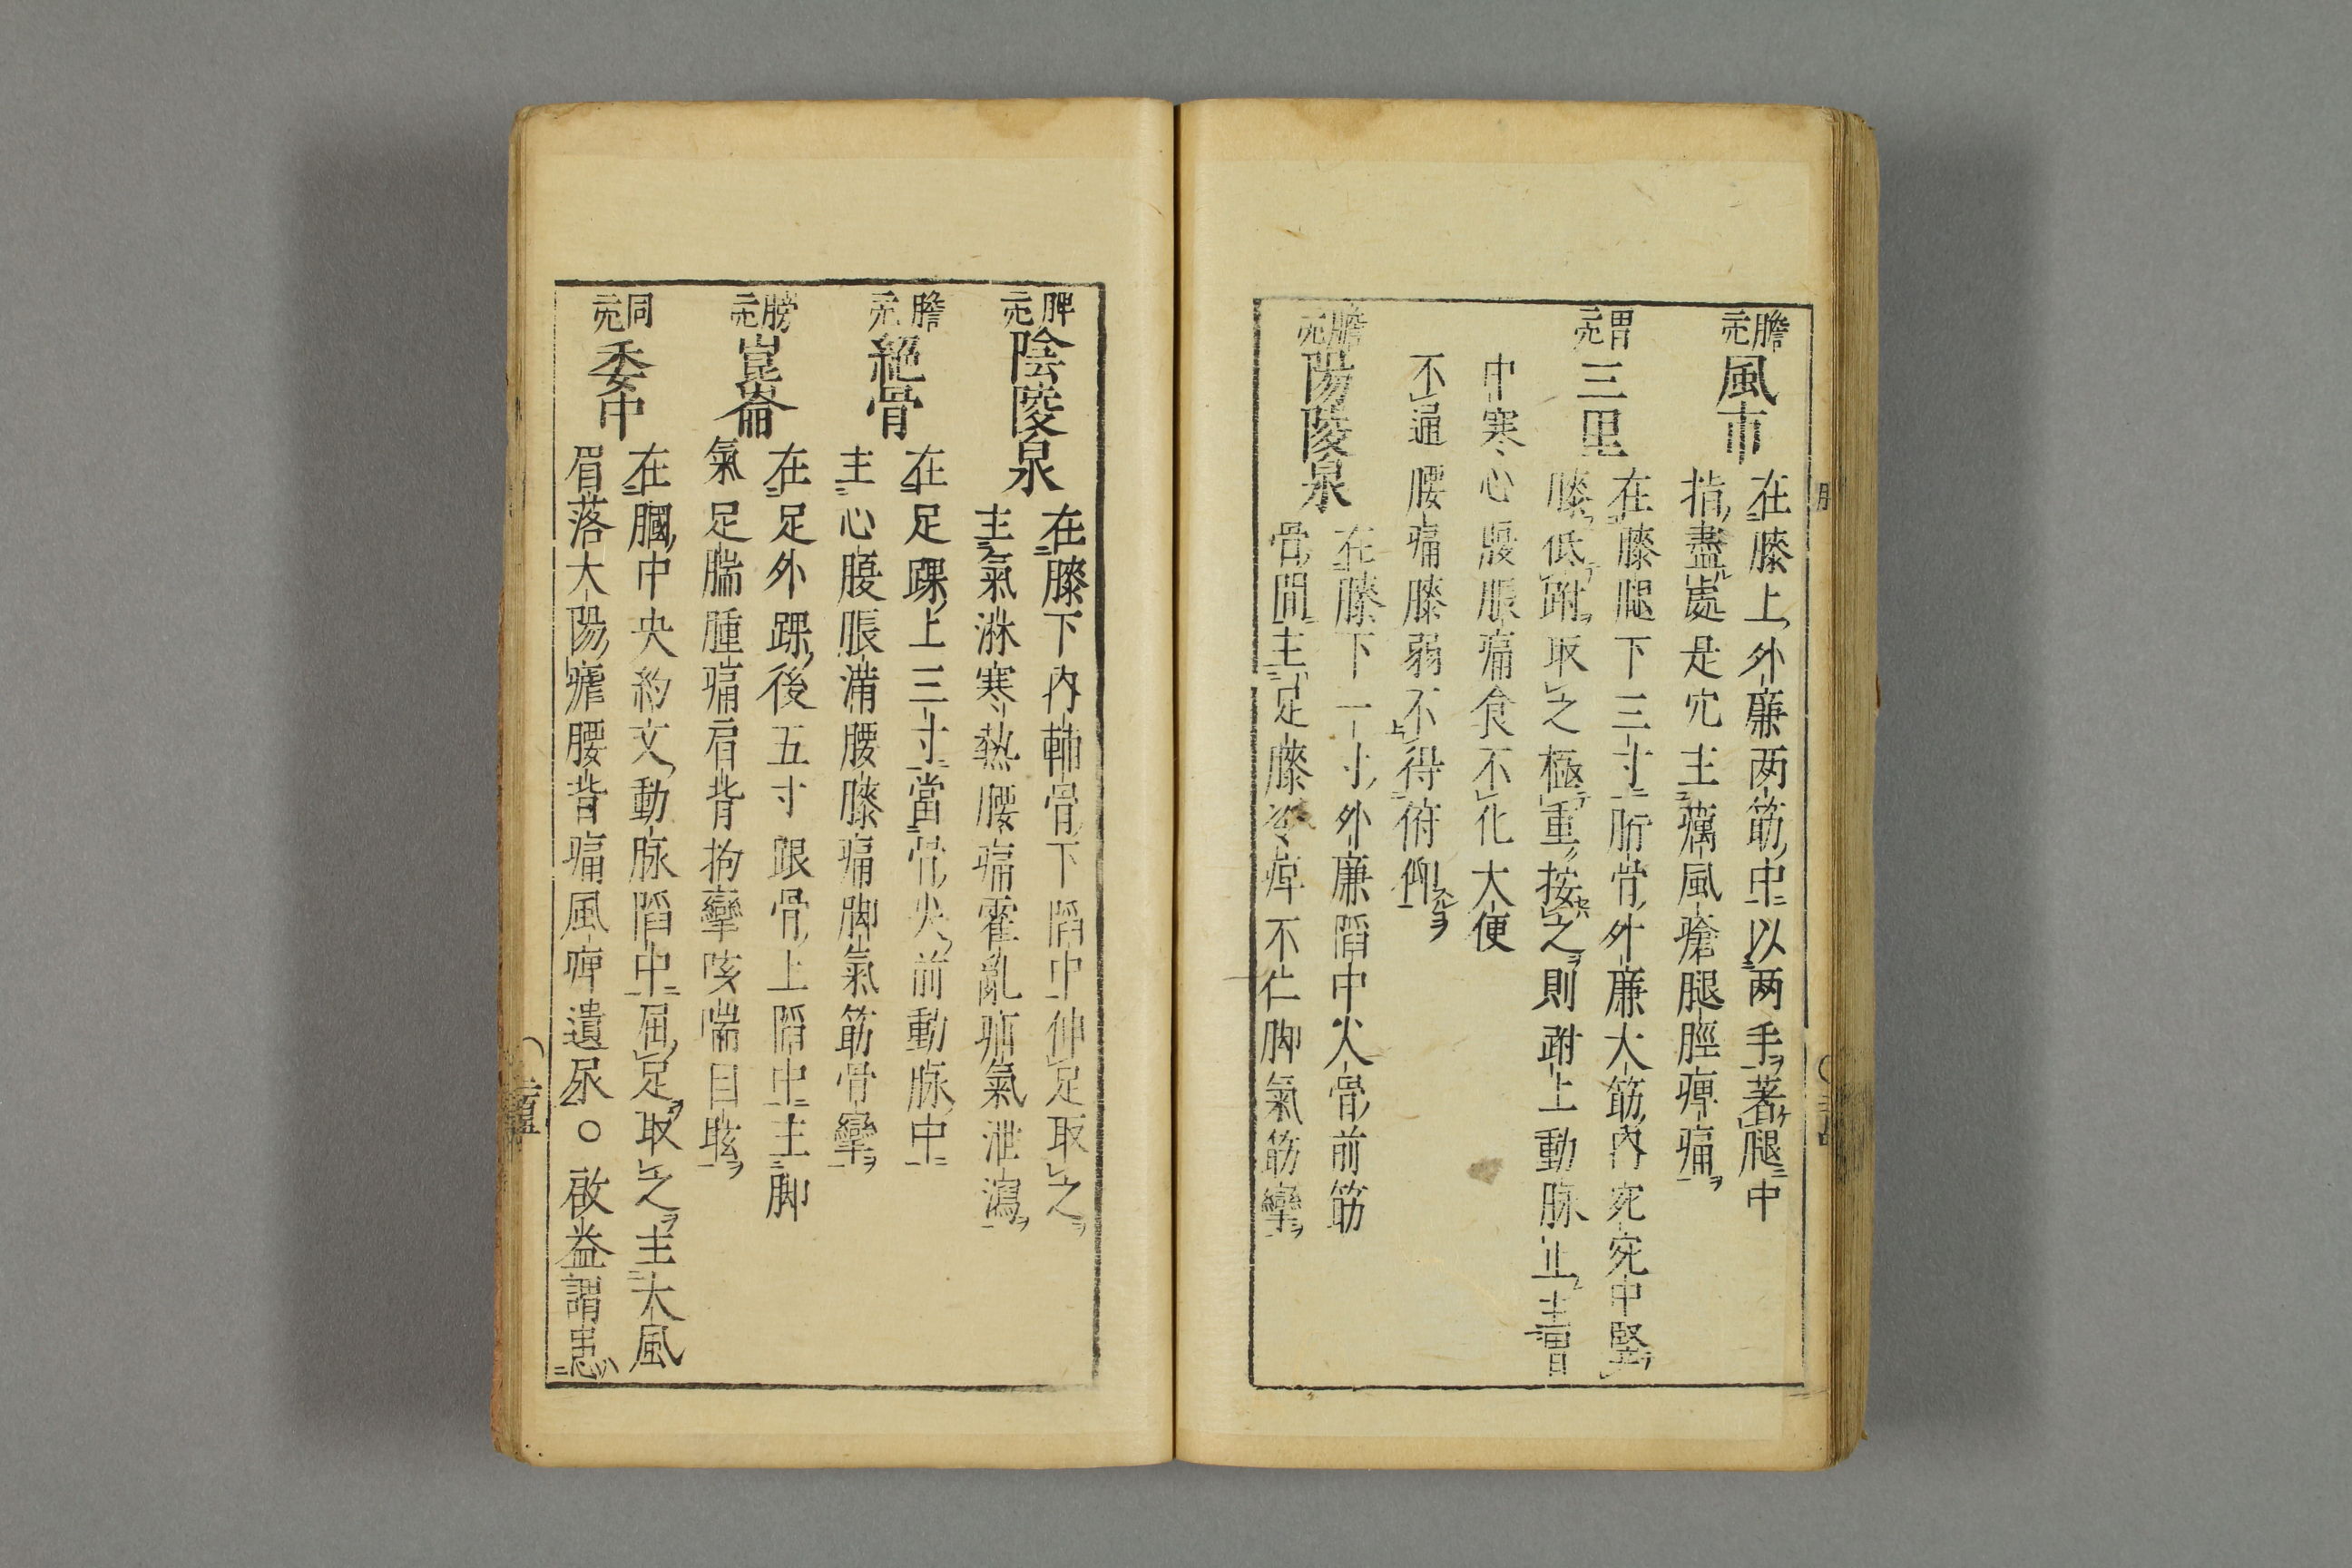 膽穴 風市
在膝上外廉両筋中以両手著腿中
指盡處是穴主癘風瘡腿脛痺痛
胃穴 三里
在膝膃下三寸胻骨外廉大筋内宛宛中竪
膝低跗取之極重按之則跗上動脉止主胃
中寒心腹脹痛食不化大便
不通腰痛膝弱不得俯仰
膽穴 陽陵泉
在膝下一寸外廉陷中火骨前筋
骨間主足膝冷痺不仁脚氣筋攣
脾穴 陰陵泉
在膝下内輔骨下陷中伸足取之
主氣淋寒熱腰痛霍亂疝氣泄瀉
膽穴 絕骨
在足踝上三寸當骨尖前動脉中
主心腹脹滿腰膝痛脚氣筋骨攣
膀穴 崑崙
在足外踝後五寸跟骨上陷中主脚
氣足腨腫痛肩背拘攣咳喘目眩
同穴 委中
在膕中央約文動脉陷中屈足取之主大風
眉落大陽瘧腰背痛風痺遺尿○啟益謂患